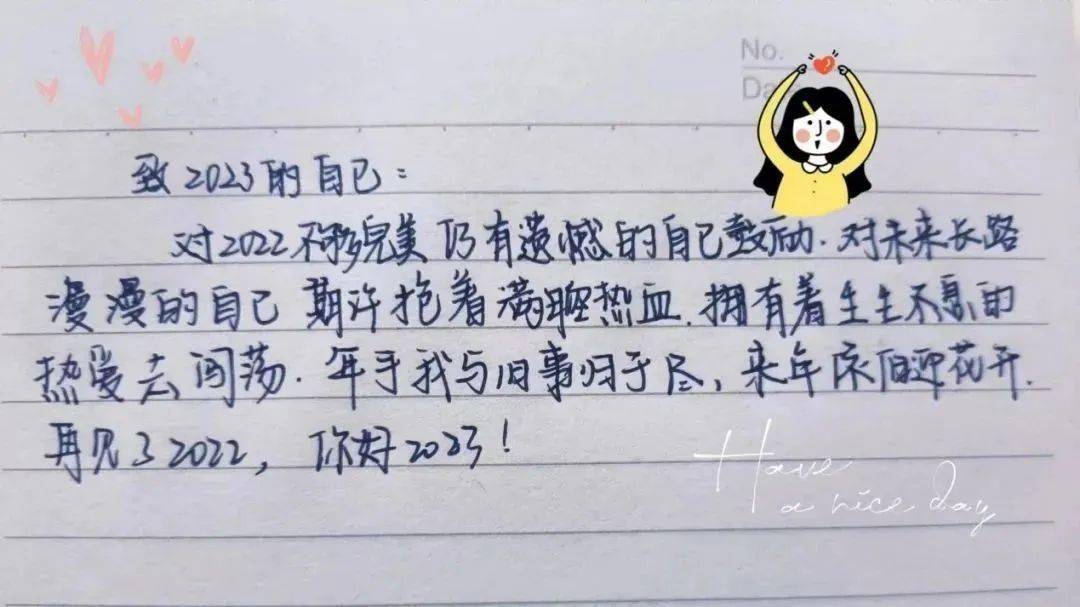 No.
Da
致2023的自己：
对2022不够完美仍有遗憾的自己鼓励.对未来长路
漫漫的自己 期许抱着满腔热血.拥有着生生不息的
热爱去闯荡.年于我与旧事归于尽，来年依旧迎花开.
再见了2022，你好2023！
Have
a nice day